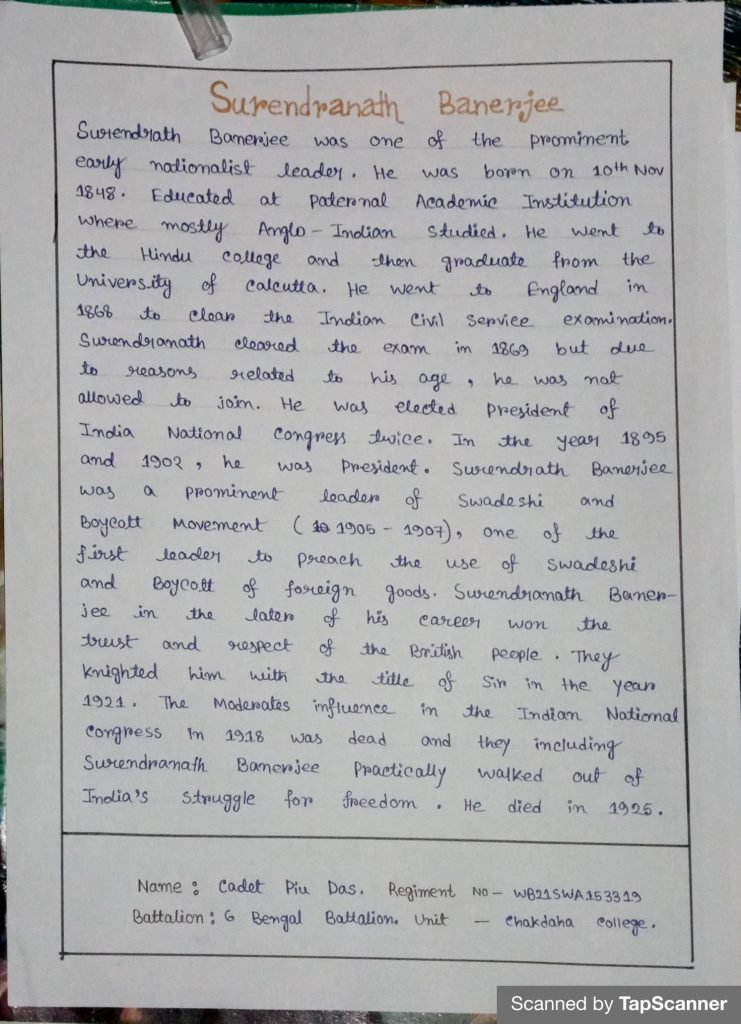 Surendranath Banerjee
Surendrath Banerjee was one of the prominent
early nationalist leader. He was born on 10th Nov
1848. Educated at paternal Academic Institution
where mostly Anglo-Indian Studied. He went to
the Hindu college and then graduate from the
University of Calcutta. He went to England in
1868 to clear the Indian Civil Service examination.
Surendranath cleared the exam in 1869 but due
to reasons related to his age, he was not
allowed to join. He was elected president of
India National Congress twice. In the year 1895
and 1902, he was President. Surendrath Banerjee
was a prominent leader of Swadeshi and
Boycott Movement (1905-1907), one of the
first leader to preach the use of swadeshi
and Boycott of foreign goods. Surendranath Baner-
jee in the later of his career won the
trust and respect of the British people. They
knighted him with the title of Sir in the year
1921. The Moderates influence in the Indian National
Congress in 1918 was dead and they including
Surendranath Banerjee Practically walked out of
India's Struggle for freedom. He died in 1925.
Name: Cadet Piu Das. Regiment NO- WB21SWA153319
Battalion: 6 Bengal Battalion. Unit - Chakdaha College.
Scanned by TapScanner